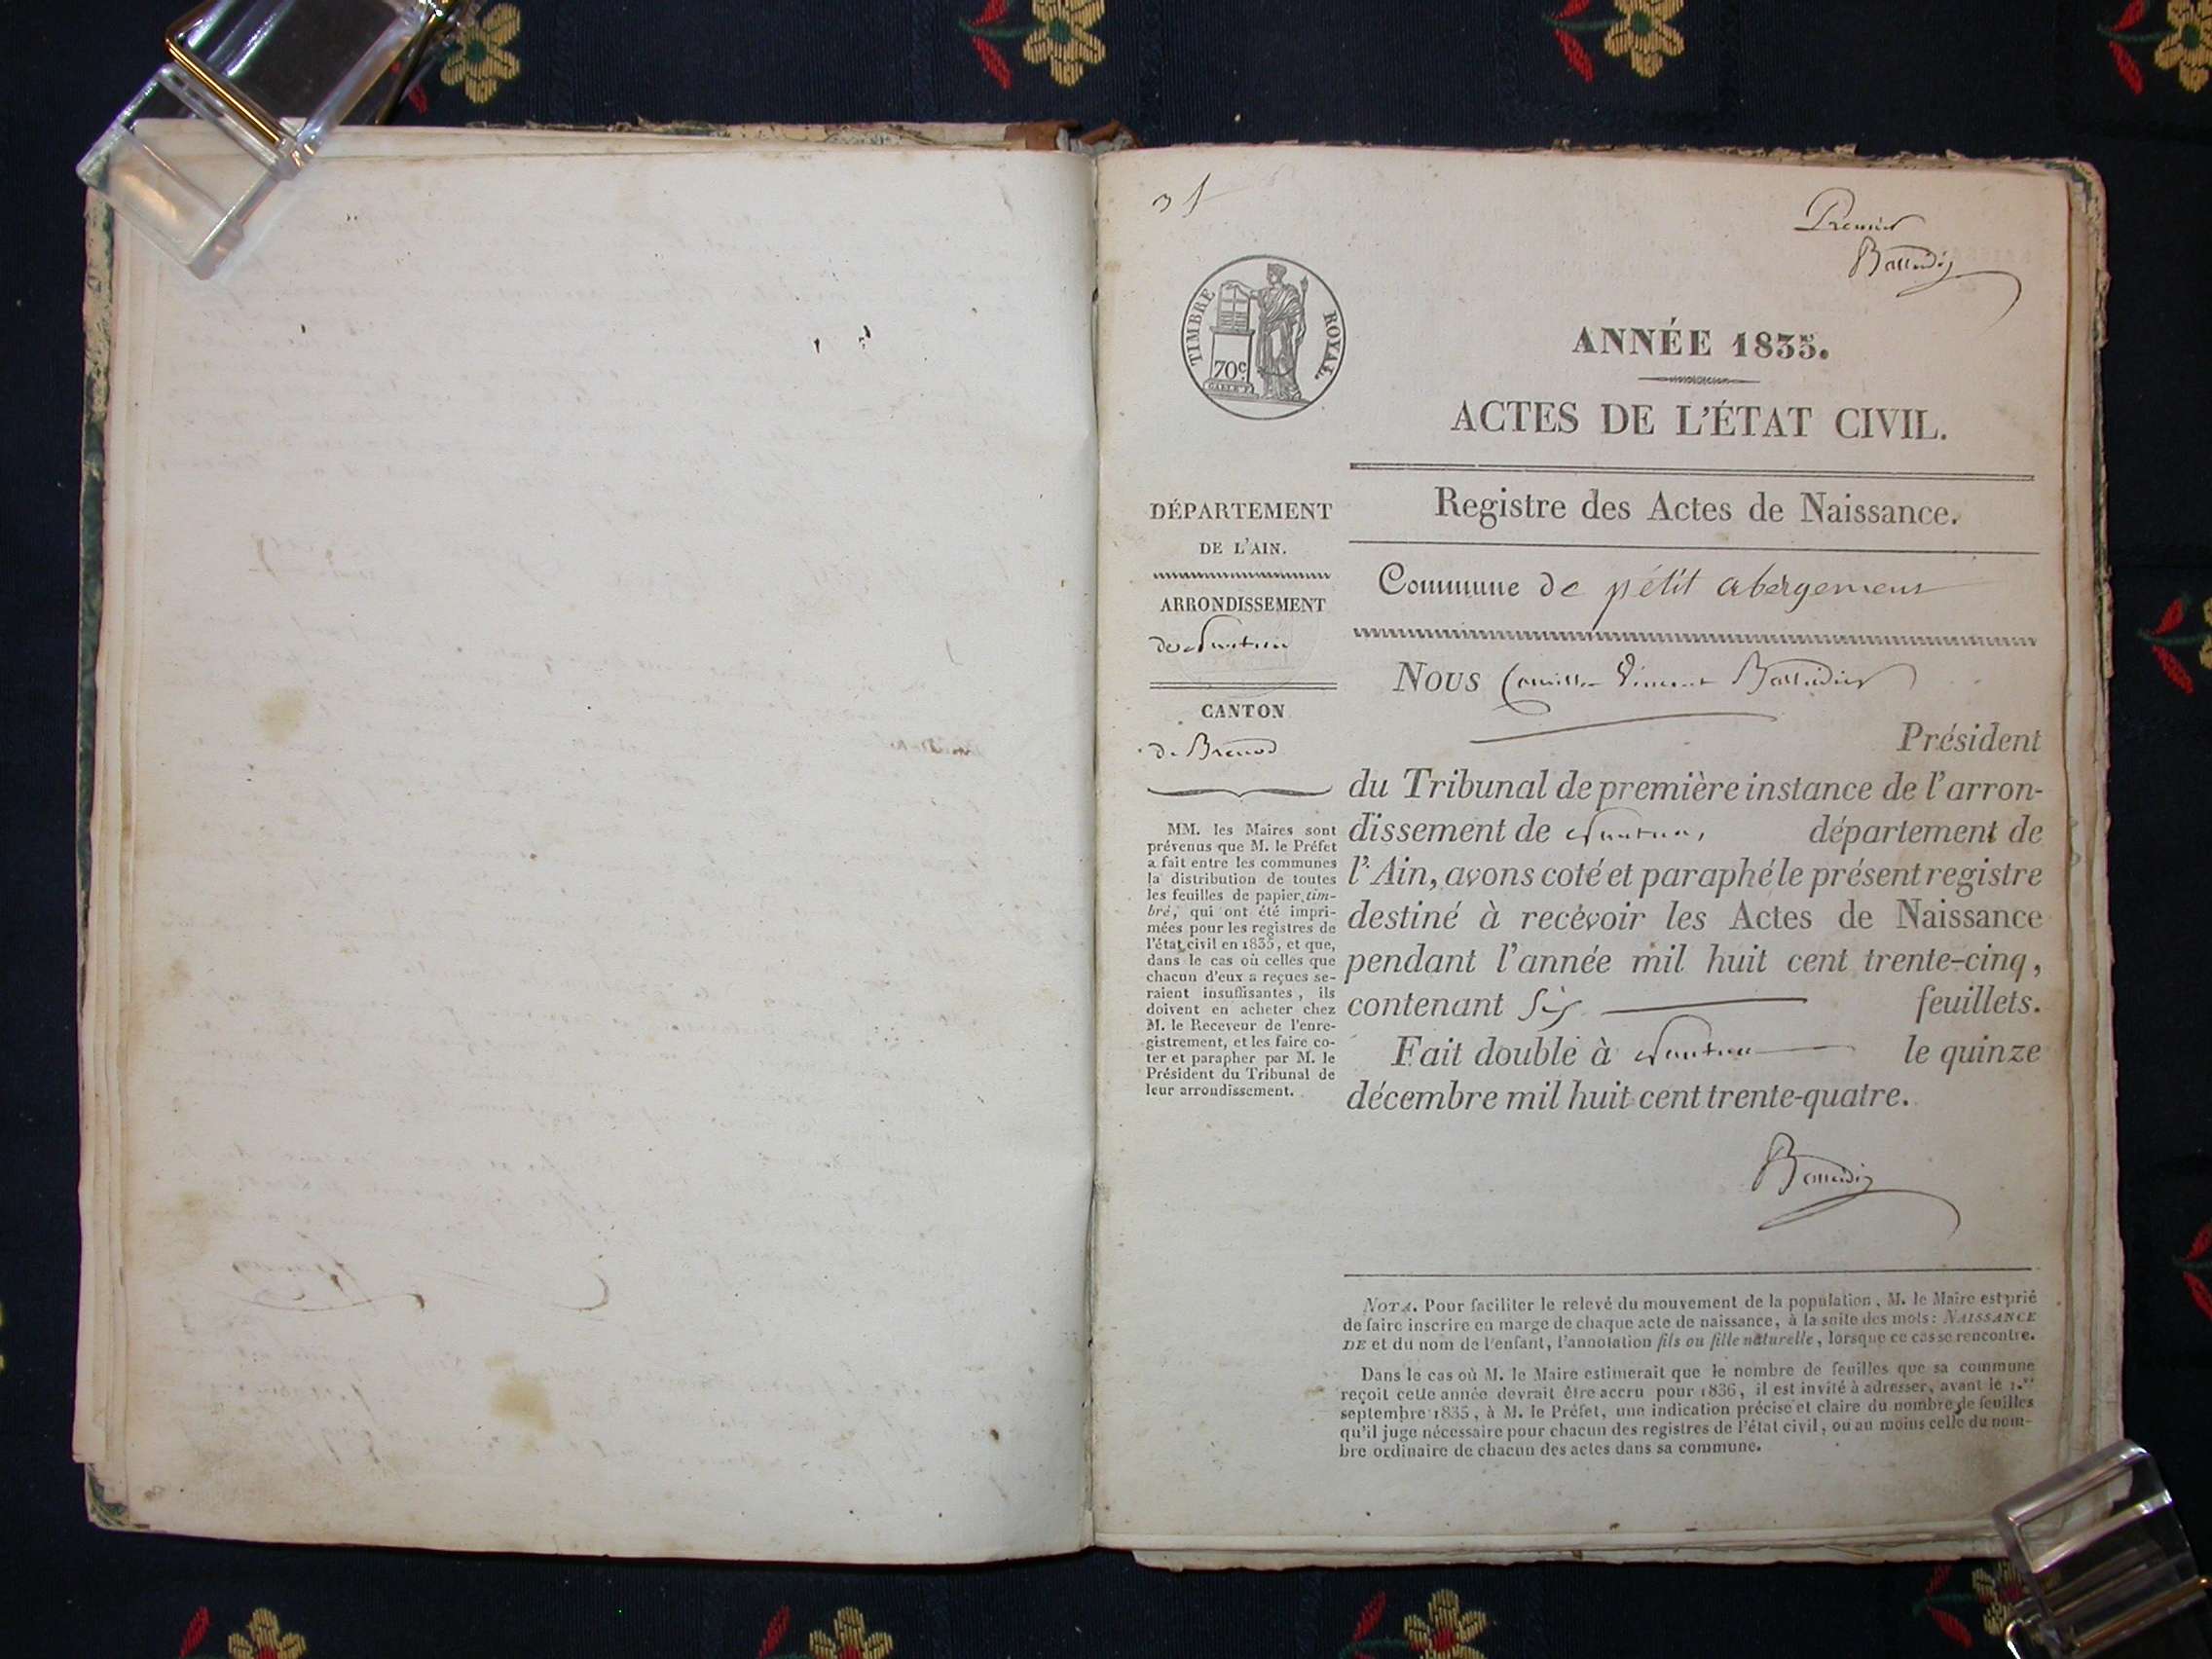 Premier
TIMBRE ROYAL.
70c.
ANNÉE 1835.
ACTES DE L'ÉTAT CIVIL.
Registre des Actes de Naissance.
Commune de petit abergement
DÉPARTEMENT
DE L'AIN.
ARRONDISSEMENT
de Nantua
CANTON
de Brenod
MM. les Maires sont
prévenus que M. le Préfet
a fait entre les communes
la distribution de toutes
les feuilles de papier tim-
bré, qui ont été impri-
mées pour les registres de
l'état civil en 1835, et que,
dans le cas où celles que
chacun d'eux a reçues se-
raient insuffisantes, ils
doivent en acheter chez
M. le Receveur de l'enre-
gistrement, et les faire co-
ter et parapher par M. le
Président du Tribunal de
leur arrondissement.
Nous Camille Vincent
Président
du Tribunal de première instance de l'arron-
dissement de Nantua, département de
l'Ain, avons coté et paraphé le présent registre
destiné à recevoir les Actes de Naissance
pendant l'année mil huit cent trente-cinq,
contenant Six feuillets.
Fait double à Nantua le quinze
décembre mil huit cent trente-quatre.
NOTA. Pour faciliter le relevé du mouvement de la population, M. le Maire est prié
de faire inscrire en marge de chaque acte de naissance, à la suite des mots: NAISSANCE
DE et du nom de l'enfant, l'annotation fils ou fille naturelle, lorsque ce cas se rencontre.
Dans le cas où M. le Maire estimerait que le nombre de feuilles que sa commune
reçoit cette année devrait être accru pour 1836, il est invité à adresser, avant le 1.er
septembre 1835, à M. le Préfet, une indication précise et claire du nombre de feuilles
qu'il juge nécessaire pour chacun des registres de l'état civil, ou au moins celle du nom-
bre ordinaire de chacun des actes dans sa commune.